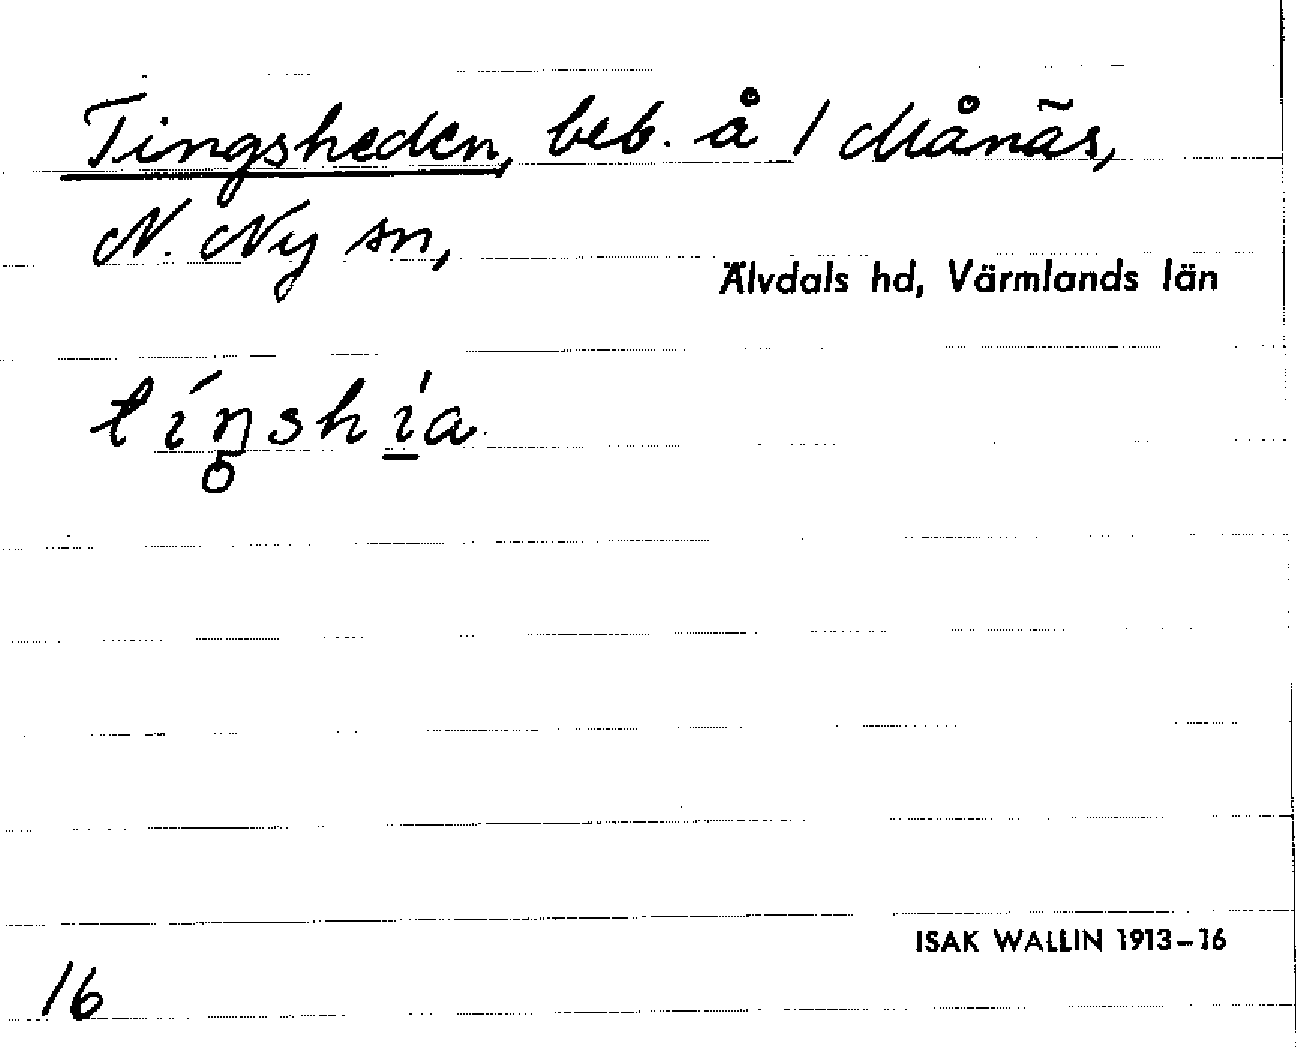 Tingsheden, beb. å 1 Månäs,
N. Ny sn,
Älvdals hd, Värmlands län
tíŋ̥shí̲a
ISAK WALLIN 1913–16
16